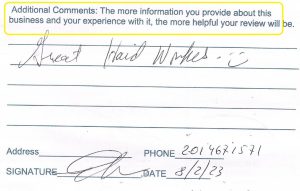 Additional Comments: The more information you provide about this
business and your experience with it, the more helpful your review will be.
Great Hard Worker
Address PHONE 2014671571
SIGNATURE DATE 8/2/23